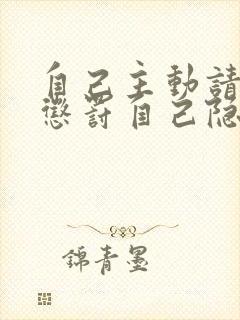 自己主動請
懲罰自己隐
錦青墨